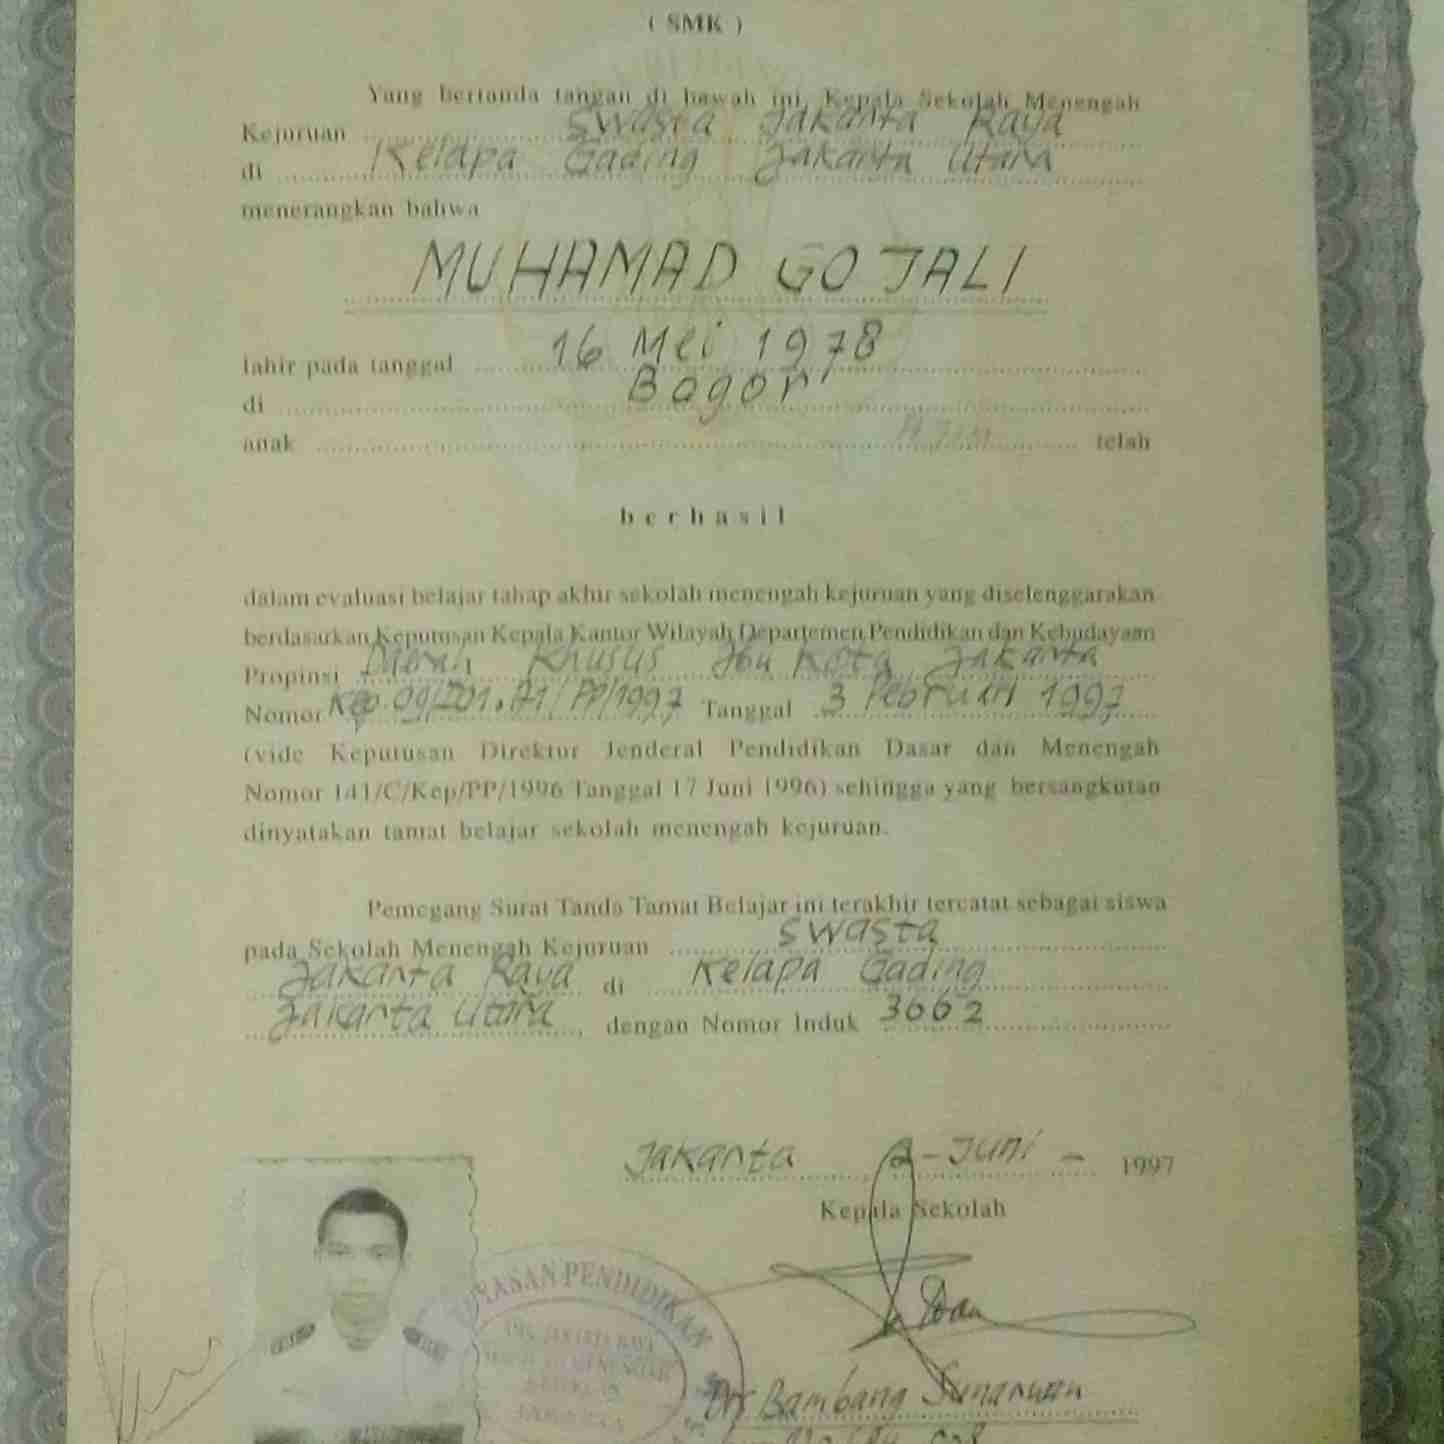 ( SMK )
Yang bertanda tangan di bawah ini, Kepala Sekolah Menengah
Kejuruan Swasta Jakarta Raya
di Kelapa Gading Jakarta Utara
menerangkan bahwa
MUHAMAD GOJALI
lahir pada tanggal 16 Mei 1978
di Bogor
anak telah
berhasil
dalam evaluasi belajar tahap akhir sekolah menengah kejuruan yang diselenggarakan
berdasarkan Keputusan Kepala Kantor Wilayah Departemen Pendidikan dan Kebudayaan
Propinsi Daerah Khusus Ibu Kota Jakarta
Nomor Kep. 09/I01.A1/PP/1997 Tanggal 3 Pebruari 1997
(vide Keputusan Direktur Jenderal Pendidikan Dasar dan Menengah
Nomor 141/C/Kep/PP/1996 Tanggal 17 Juni 1996) sehingga yang bersangkutan
dinyatakan tamat belajar sekolah menengah kejuruan.
Pemegang Surat Tanda Tamat Belajar ini terakhir tercatat sebagai siswa
pada Sekolah Menengah Kejuruan Swasta
Jakarta Raya di Kelapa Gading
Jakarta Utara, dengan Nomor Induk 3662
Jakarta 2 - Juni - 1997
Kepala Sekolah
YAYASAN PENDIDIKAN
JAKARTA
Drs Bambang